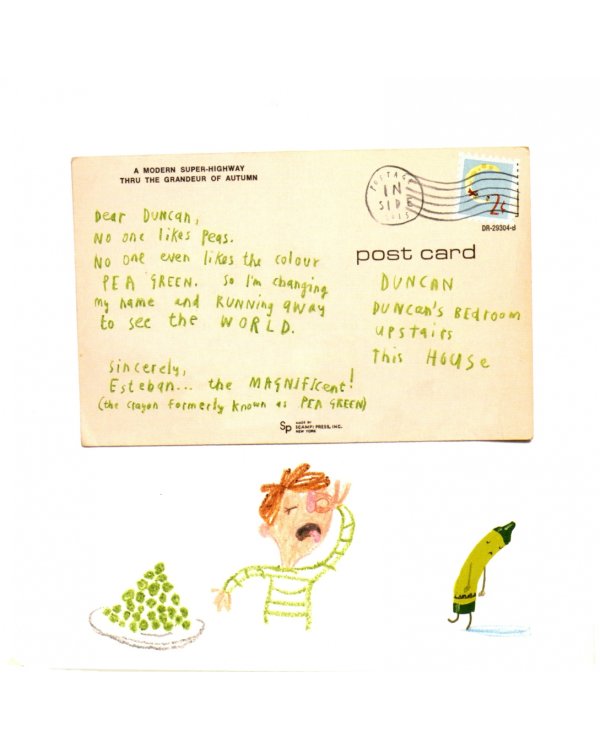 A MODERN SUPER-HIGHWAY
THRU THE GRANDEUR OF AUTUMN
Dear DUNCAN,
NO ONE likes Peas.
NO ONE even likes the colour
PEA GREEN. So I'm changing
my name and RUNNING away
to see the WORLD.
Sincerely,
Esteban... the MAGNificent!
(the crayon formerly known as PEA GREEN)
POSTAGE
IN
SIDE
2015
2¢
DR-29304-d
post card
DUNCAN
DUNCAN'S BEDROOM
UPSTAIRS
This HOUSE
Sp
MADE BY
SCAMP! PRESS, INC.
NEW YORK